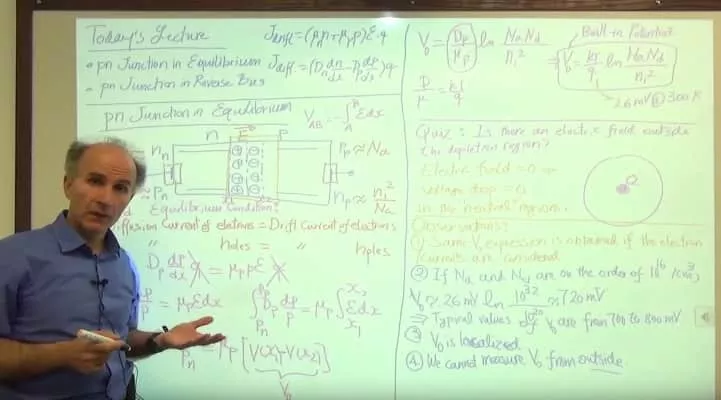 Today's Lecture
J_drift = (μ_n n + μ_p p) E q
• pn Junction in Equilibrium
J_diff = (D_n dn/dx - D_p dp/dx) q
• pn Junction in Reverse Bias
pn Junction in Equilibrium
V_AB = -∫_A^B E dx
n E P
n_n
P_p ≈ N_a
≈ P_n
n_p ≈ n_i^2/N_a
Equilibrium Condition:
Diffusion Current of electrons = Drift Current of electrons
" holes = " holes
D_p dp/dx = μ_p p E
= μ_p E dx
∫ D_p dp/p = μ_p ∫_{x_1}^{x_2} E dx
P_n
= μ_p [V(x_1) - V(x_2)]
V_0
V_0 = D_p/μ_p ln N_a N_d/n_i^2
Built-in Potential
⇒ V_0 = kT/q ln N_a N_d/n_i^2
D/μ = kT/q
26 mV @ 300 K
Quiz: Is there an electric field outside
the depletion region?
Electric field = 0 ⇒
voltage drop = 0
in the "neutral" region.
Q
Observations:
① Same V_0 expression is obtained if the electron
currents are considered
② If N_a and N_d are on the order of 10^16 /cm^3,
V_0 ≈ 26 mV ln 10^32/10^20 ≈ 720 mV
⇒ Typical values of V_0 are from 700 to 800 mV
③ V_0 is localized
④ We cannot measure V_0 from outside